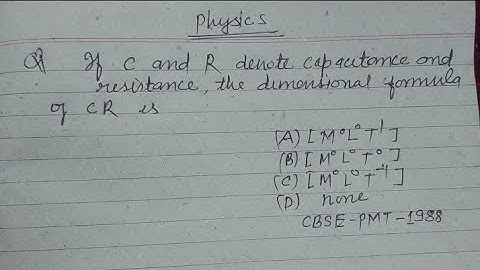 Physics
Q If C and R denote capacitance and
resistance, the dimensional formula
of CR is
(A) [M⁰L⁰T¹]
(B) [M⁰L⁰T⁰]
(C) [M⁰L⁰T⁻¹]
(D) none
CBSE-PMT-1988